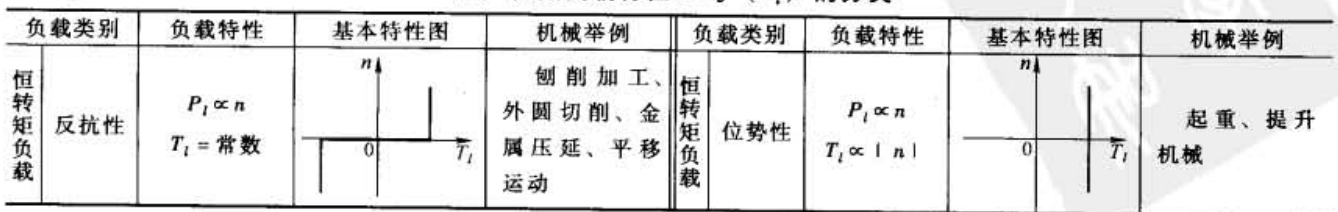 负载类别 负载特性 基本特性图 机械举例 负载类别 负载特性 基本特性图 机械举例
恒转矩负载
反抗性
P_l ∝ n
T_l = 常数
n
0
T_l
刨削加工、
外圆切削、金
属压延、平移
运动
恒转矩负载
位势性
P_l ∝ n
T_l ∝ | n |
n
0
T_l
起重、提升
机械